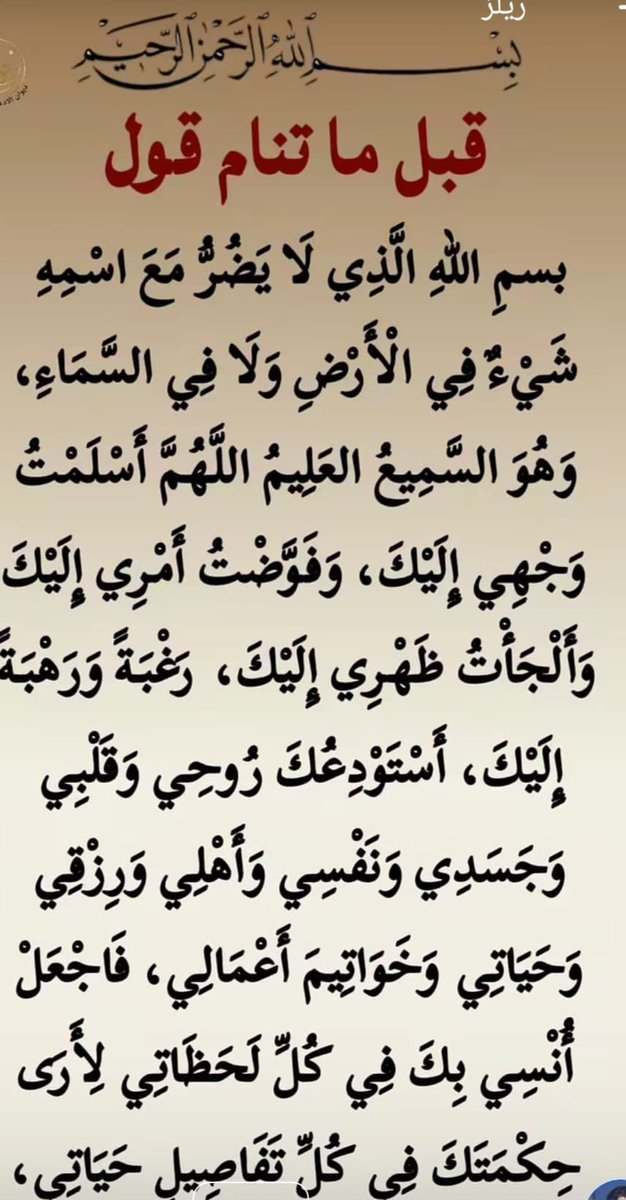 ريلز
بِسْمِ اللهِ الرَّحْمٰنِ الرَّحِيْمِ
قبل ما تنام قول
بسمِ اللهِ الَّذِي لَا يَضُرُّ مَعَ اسْمِهِ
شَيْءٌ فِي الْأَرْضِ وَلَا فِي السَّمَاءِ،
وَهُوَ السَّمِيعُ العَلِيمُ اللَّهُمَّ أَسْلَمْتُ
وَجْهِي إِلَيْكَ، وَفَوَّضْتُ أَمْرِي إِلَيْكَ
وَأَلْجَأْتُ ظَهْرِي إِلَيْكَ، رَغْبَةً وَرَهْبَةً
إِلَيْكَ، أَسْتَوْدِعُكَ رُوحِي وَقَلْبِي
وَجَسَدِي وَنَفْسِي وَأَهْلِي وَرِزْقِي
وَحَيَاتِي وَخَوَاتِيمَ أَعْمَالِي، فَاجْعَلْ
أُنْسِي بِكَ فِي كُلِّ لَحَظَاتِي لِأَرَى
حِكْمَتَكَ فِي كُلِّ تَفَاصِيلِ حَيَاتِي،